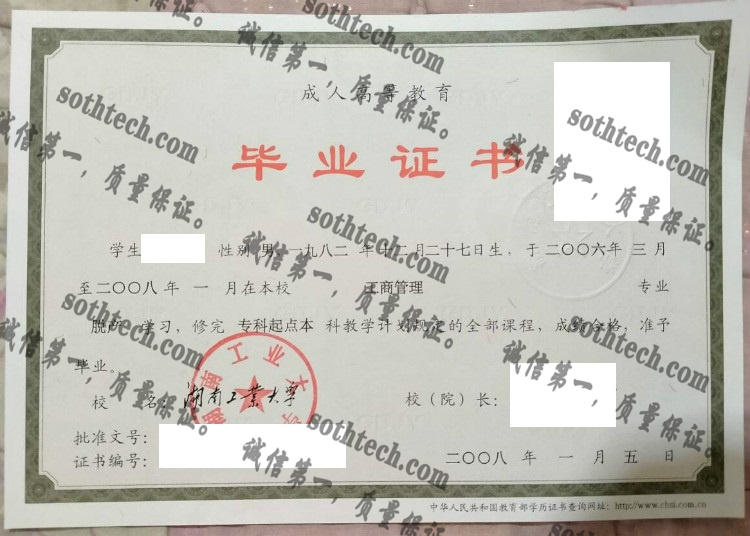 成人高等教育
毕业证书
学生 性别 男, 一九八二 年十二月二十七日生, 于二〇〇六年 三 月
至二〇〇八年 一 月在本校 工商管理 专业
脱产 学习, 修完 专科起点本 科教学计划规定的全部课程, 成绩合格, 准予
毕业。
校 名: 湖南工业大学 校（院）长:
湖南工业大学
批准文号:
证书编号: 二〇〇八 年 一 月 五 日
中华人民共和国教育部学历证书查询网址: http://www.chsi.com.cn
sothtech.com
诚信第一，质量保证。
sothtech.com
诚信第一，质量保证。
sothtech.com
诚信第一，质量保证。
sothtech.com
诚信第一，质量保证。
sothtech.com
诚信第一，质量保证。
sothtech.com
诚信第一，质量保证。
sothtech.com
诚信第一，质量保证。